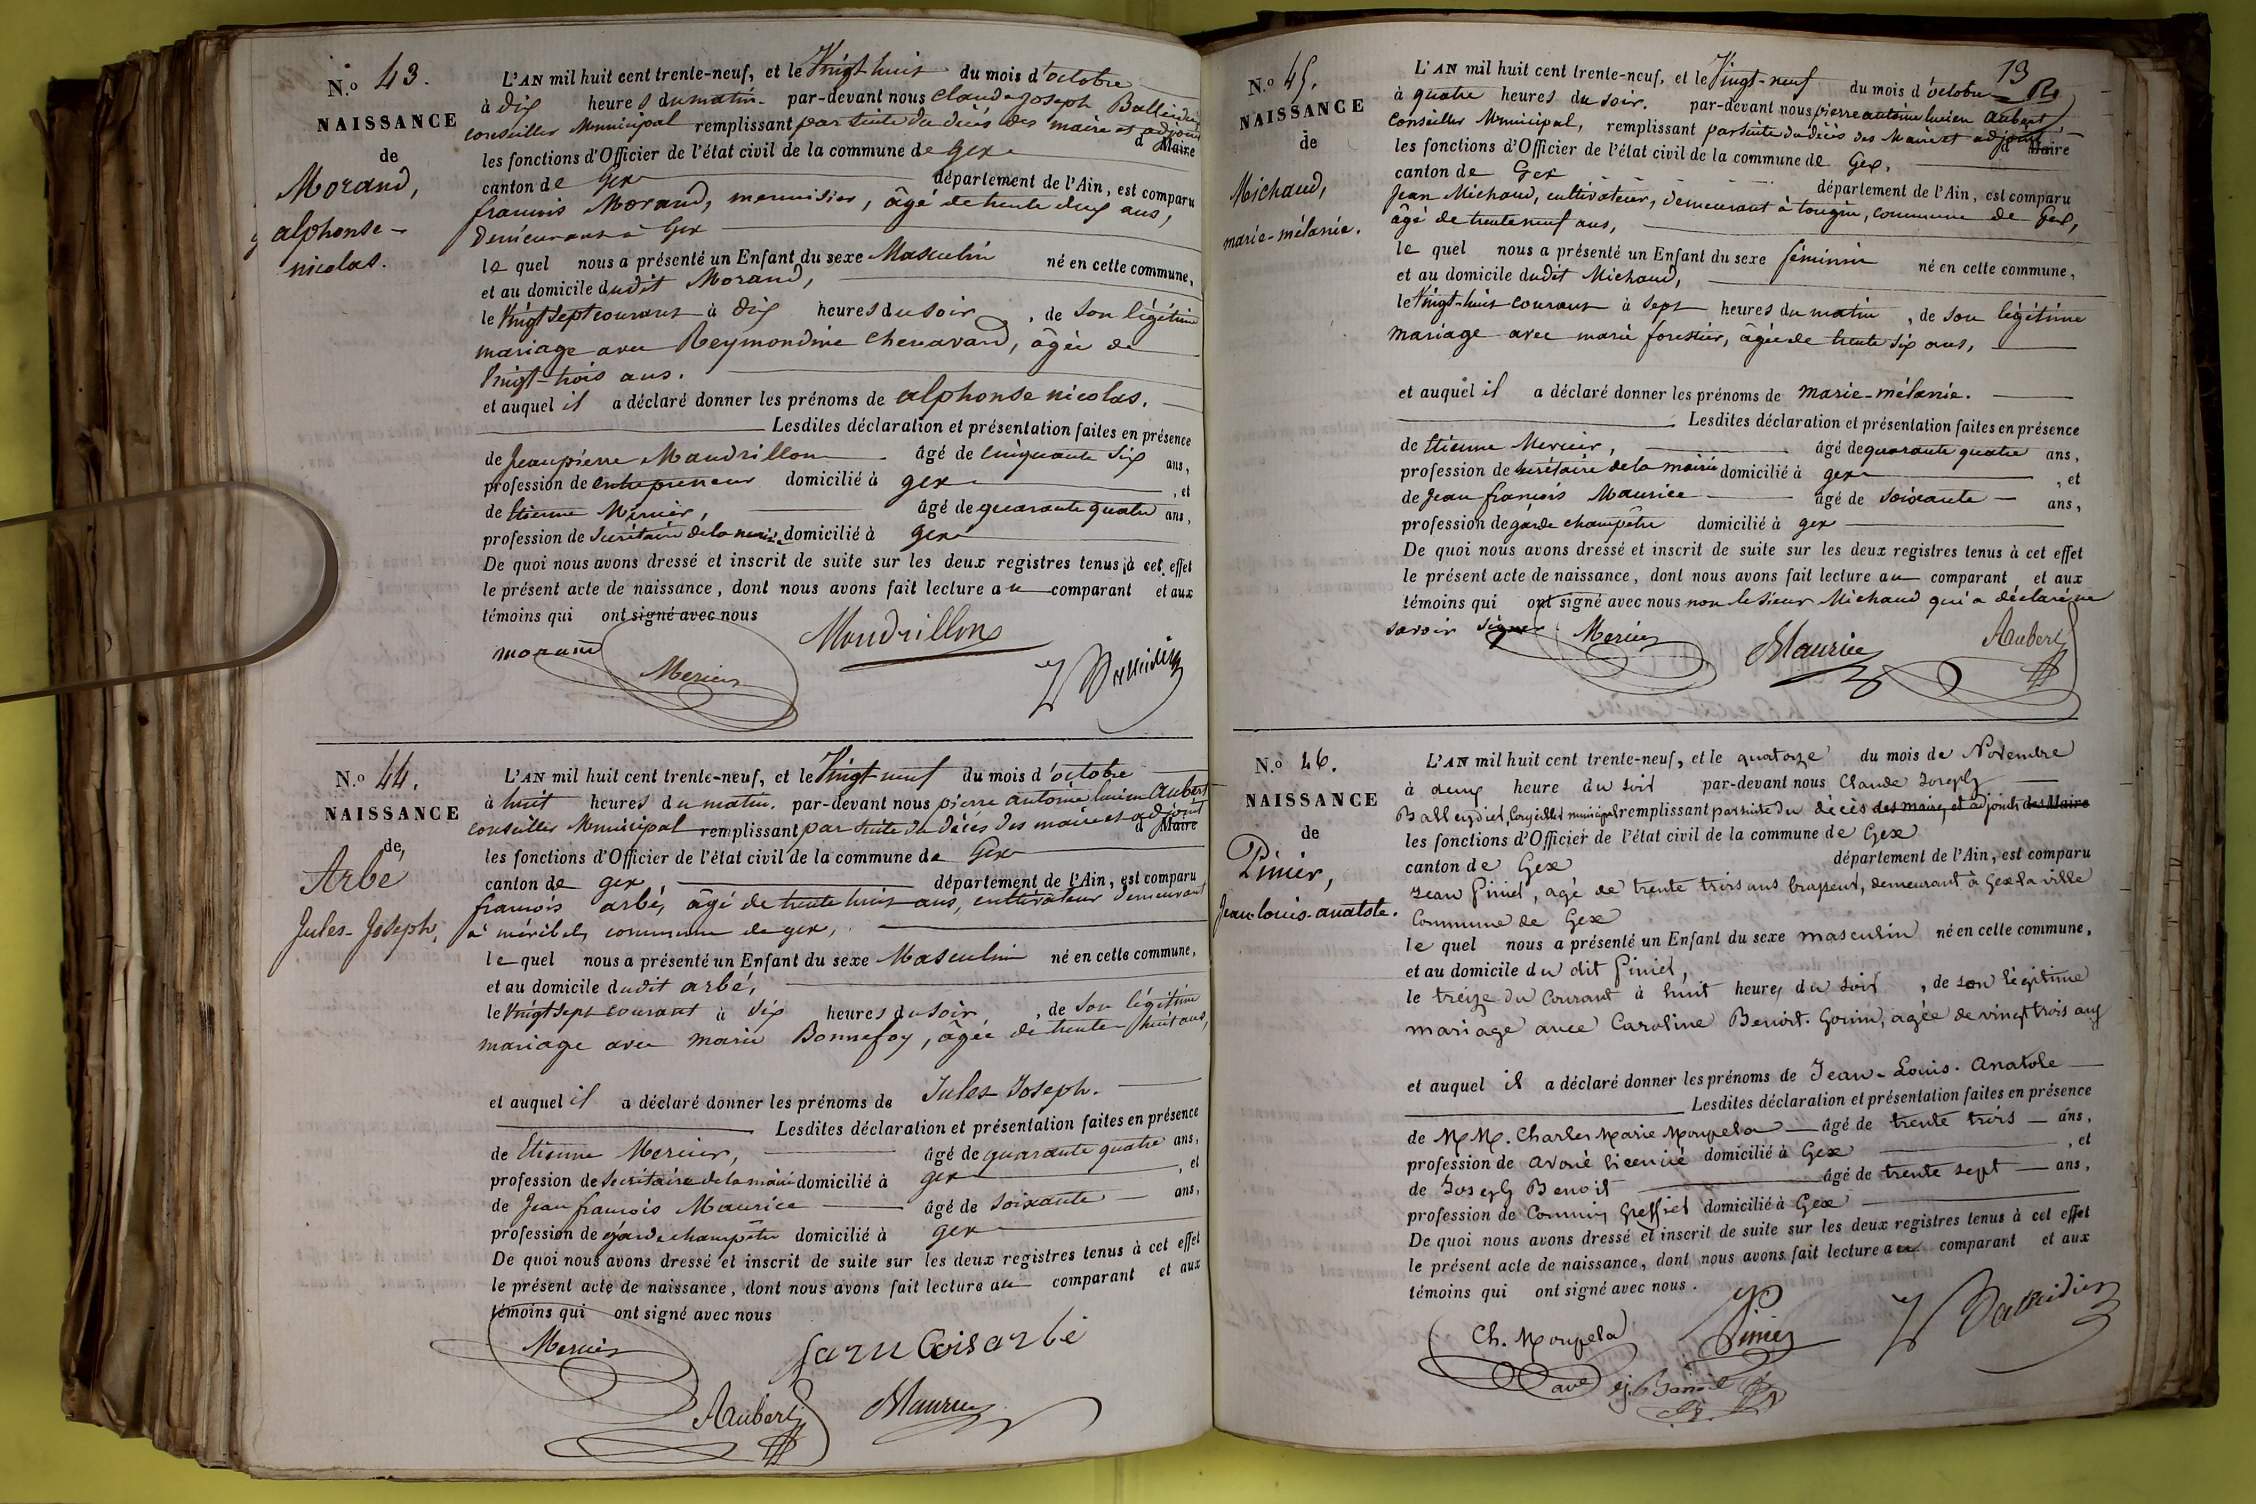 N.º 43.
NAISSANCE
de
Morand,
alphonse-
nicolas.
L'AN mil huit cent trente-neuf, et le Vingt huit du mois d'octobre
à dix heures du matin. par-devant nous claude joseph Balleidier
conseiller Municipal remplissant par suite du décès des maire et adjoint d Maire
les fonctions d'Officier de l'état civil de la commune de gex
canton de Gex département de l'Ain, est comparu
françois Morand, menuisier, âgé de trente deux ans,
Demeurant à Gex
le quel nous a présenté un Enfant du sexe Masculin né en cette commune,
et au domicile dudit Morand,
le Vingt sept courant à dix heures du soir, de son légitime
mariage avec Reymondine chenavard, âgée de
Vingt-trois ans.
et auquel il a déclaré donner les prénoms de alphonse nicolas.
Lesdites déclaration et présentation faites en présence
de Jean pierre Mandrillon âgé de cinquante six ans,
profession de entrepreneur domicilié à gex, et
de Etienne Mercier, âgé de quarante quatre ans,
profession de Secrétaire de la mairie domicilié à gex
De quoi nous avons dressé et inscrit de suite sur les deux registres tenus à cet effet
le présent acte de naissance, dont nous avons fait lecture au comparant et aux
témoins qui ont signé avec nous
Mandrillon
morand
Mercier
Balleidier
N.º 44.
NAISSANCE
de,
Arbé
Jules-Joseph,
L'AN mil huit cent trente-neuf, et le Vingt-neuf du mois d'octobre
à huit heures du matin. par-devant nous pierre antoine lucien Aubert
conseiller Municipal remplissant par suite du décès des maire et adjoint d Maire
les fonctions d'Officier de l'état civil de la commune de Gex
canton de gex département de l'Ain, est comparu
françois arbé, âgé de trente huit ans, cultivateur demeurant
à méribel, commune de gex,
le quel nous a présenté un Enfant du sexe Masculin né en cette commune,
et au domicile dudit arbé,
le Vingt sept courant à six heures du soir, de son légitime
mariage avec marie Bonnefoy, âgée de trente-huit ans,
et auquel il a déclaré donner les prénoms de Jules Joseph.
Lesdites déclaration et présentation faites en présence
de Etienne Mercier, âgé de quarante quatre ans,
profession de Secrétaire de la mairie domicilié à gex, et
de Jean françois Maurice âgé de soixante ans,
profession de garde champêtre domicilié à gex
De quoi nous avons dressé et inscrit de suite sur les deux registres tenus à cet effet
le présent acte de naissance, dont nous avons fait lecture au comparant et aux
témoins qui ont signé avec nous
Mercier
arbé
Aubert
Maurice
13
N.º 45.
NAISSANCE
de
Michaud,
marie-mélanie.
L'AN mil huit cent trente-neuf, et le Vingt-neuf du mois d'octobre
à quatre heures du soir. par-devant nous pierre antoine lucien aubert
Conseiller Municipal, remplissant par suite du décès des Maire et adjoint d Maire
les fonctions d'Officier de l'état civil de la commune de Gex,
canton de Gex département de l'Ain, est comparu
Jean Michaud, cultivateur, demeurant à tougin, commune de Gex,
âgé de trente neuf ans,
le quel nous a présenté un Enfant du sexe féminin né en cette commune,
et au domicile dudit Michaud,
le Vingt-huit courant à sept heures du matin, de son légitime
mariage avec marie forestier, âgée de trente six ans,
et auquel il a déclaré donner les prénoms de marie-mélanie.
Lesdites déclaration et présentation faites en présence
de Etienne Mercier, âgé de quarante quatre ans,
profession de secrétaire de la mairie domicilié à gex, et
de Jean françois Maurice âgé de soixante ans,
profession de garde champêtre domicilié à gex
De quoi nous avons dressé et inscrit de suite sur les deux registres tenus à cet effet
le présent acte de naissance, dont nous avons fait lecture au comparant, et aux
témoins qui ont signé avec nous non le sieur Michaud qui a déclaré ne
savoir signer.
Mercier
Maurice
Aubert
N.º 46.
NAISSANCE
de
Pinier,
Jean-louis-anatole.
L'AN mil huit cent trente-neuf, et le quatorze du mois de Novembre
à deux heure du soir par-devant nous Claude Joseph
Balleydier, Conseiller municipal remplissant par suite du décès des maire et adjoint, des Maire
les fonctions d'Officier de l'état civil de la commune de Gex
canton de Gex département de l'Ain, est comparu
Jean Pinier, agé de trente trois ans, demeurant à Gex la ville
Commune de Gex
le quel nous a présenté un Enfant du sexe masculin né en cette commune,
et au domicile du dit Pinier,
le treize du Courant à huit heures du soir, de son légitime
mariage avec Caroline Benoit-Gonin, agée de vingt trois ans
et auquel il a déclaré donner les prénoms de Jean-Louis-Anatole
Lesdites déclaration et présentation faites en présence
de MM. Charles Marie âgé de trente trois ans,
profession de avoué licencié domicilié à Gex, et
de Joseph Benoit âgé de trente sept ans,
profession de Commis Greffier domicilié à Gex
De quoi nous avons dressé et inscrit de suite sur les deux registres tenus à cet effet
le présent acte de naissance, dont nous avons fait lecture au comparant et aux
témoins qui ont signé avec nous.
Ch.
Pinier
Balleidier
avé
j. Benoit